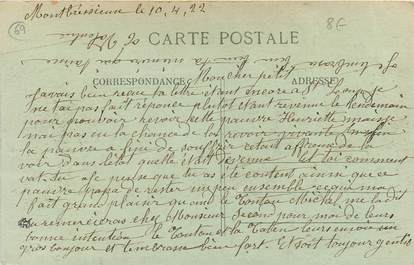 69
Montbressieux le 10, 4, 22
8F
Je t'embrasse
bien fort ta
CARTE POSTALE
CORRESPONDANCE
ADRESSE
Mon cher petit
J'avais bien reçue ta lettre étant encore a St
ne t'ai pas fait réponse plutot étant revenue le lendemain
pour pouvoir revoir cette pauvre Henriette mais je
n'ai pas eu la chance de la revoir vivante enfin
la pauvre a fini de souffrir cetait affreux de la
voir dans l'etat quelle était et toi comment
vat-tu je pense que tu as été content ainsi que ce
pauvre papa de rester un peu ensemble ce qui ma
fait grand plaisir quand le Tonton Michel me la dit
tu remercieras chez Monsieur pour moi de leurs
bonne intention le Tonton et la Taten leurs envoie un
gros bonjour et t'embrasse bien fort. Et soit toujour gentil